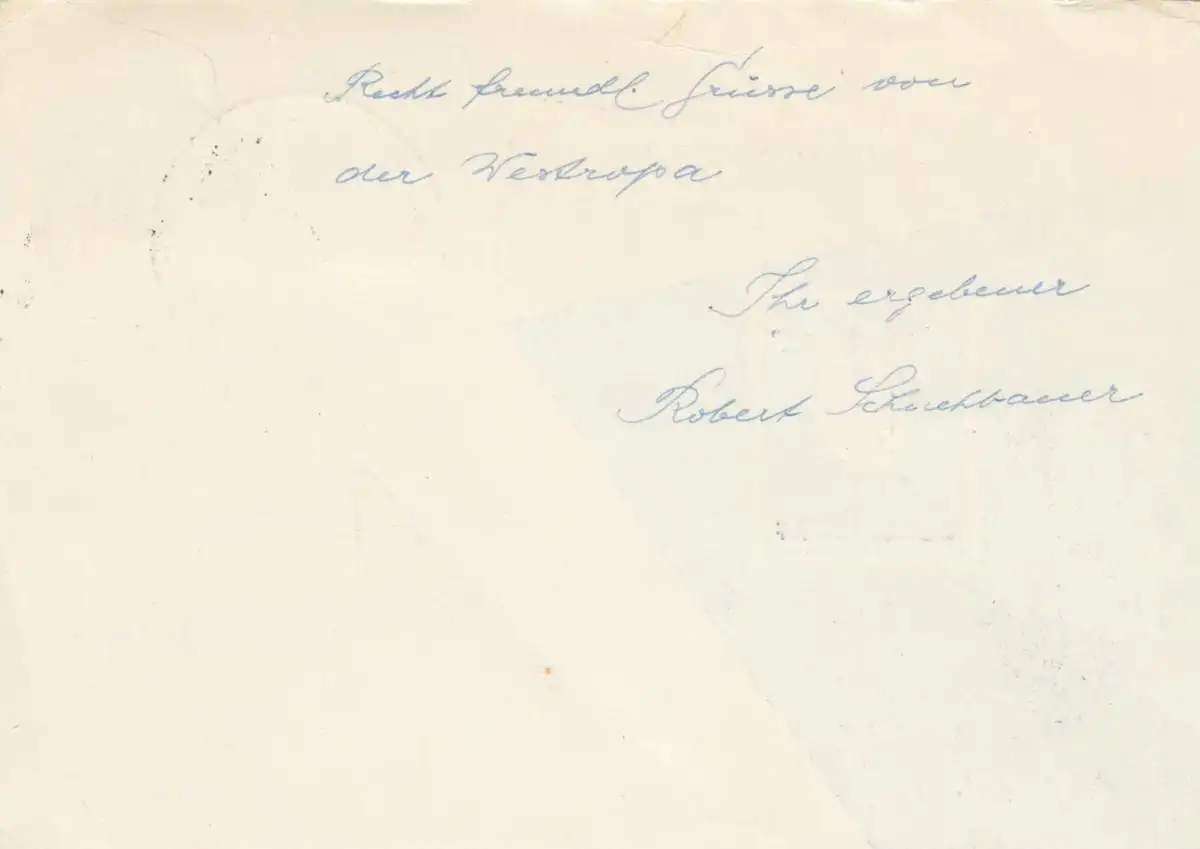 Recht freundl. Grüsse von
der Westropa
Ihr ergebener
Robert Schuchbauer